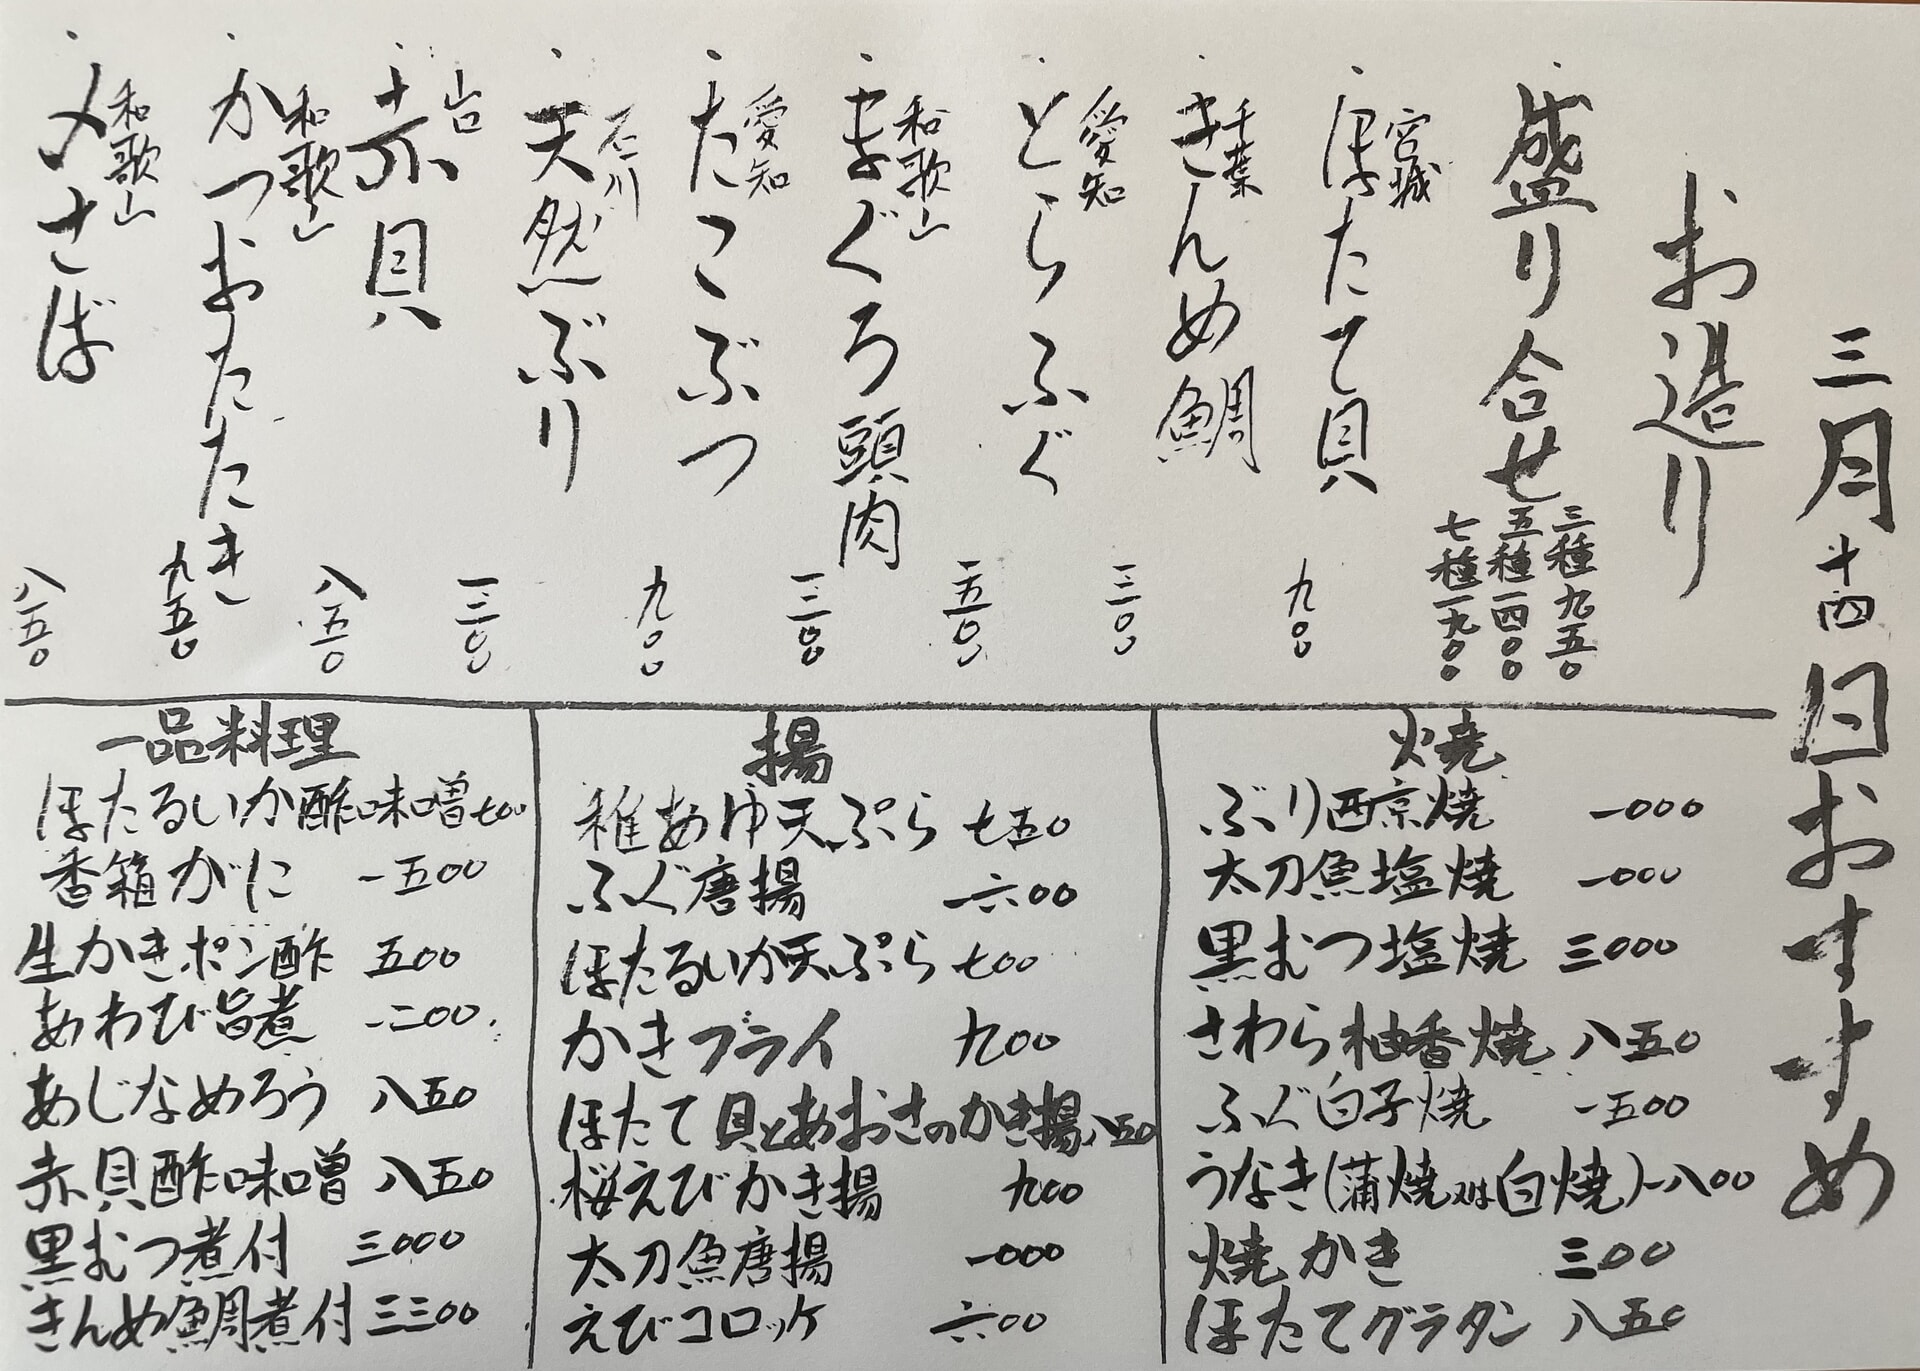 三月十四日おすすめ
お造り
盛り合せ
三種九五〇
五種一四〇〇
七種一九〇〇
宮城
ほたて貝 九〇〇
千葉
きんめ鯛 一三〇〇
愛知
とらふぐ 一五〇〇
和歌山
まぐろ頭肉 一三〇〇
愛知
たこぶつ 九〇〇
石川
天然ぶり 一三〇〇
山口
赤貝 八五〇
和歌山
かつおたたき 九五〇
和歌山
〆さば 八五〇
焼
ぶり西京焼 一000
太刀魚塩焼 一000
黒むつ塩焼 三000
さわら柚香焼 八五0
ふぐ白子焼 一五00
うなき(蒲焼又は白焼) 一八00
焼かき 三00
ほたてグラタン 八五0
揚
稚あゆ天ぷら 七五0
ふぐ唐揚 一六00
ほたるいか天ぷら 七00
かきフライ 九00
ほたて貝とあおさのかき揚 八五0
桜えびかき揚 九00
太刀魚唐揚 一000
えびコロッケ 六00
一品料理
ほたるいか酢味噌 七00
香箱がに 一五00
生かきポン酢 五00
あわび旨煮 一二00
あじなめろう 八五0
赤貝酢味噌 八五0
黒むつ煮付 三000
きんめ鯛煮付 三三00